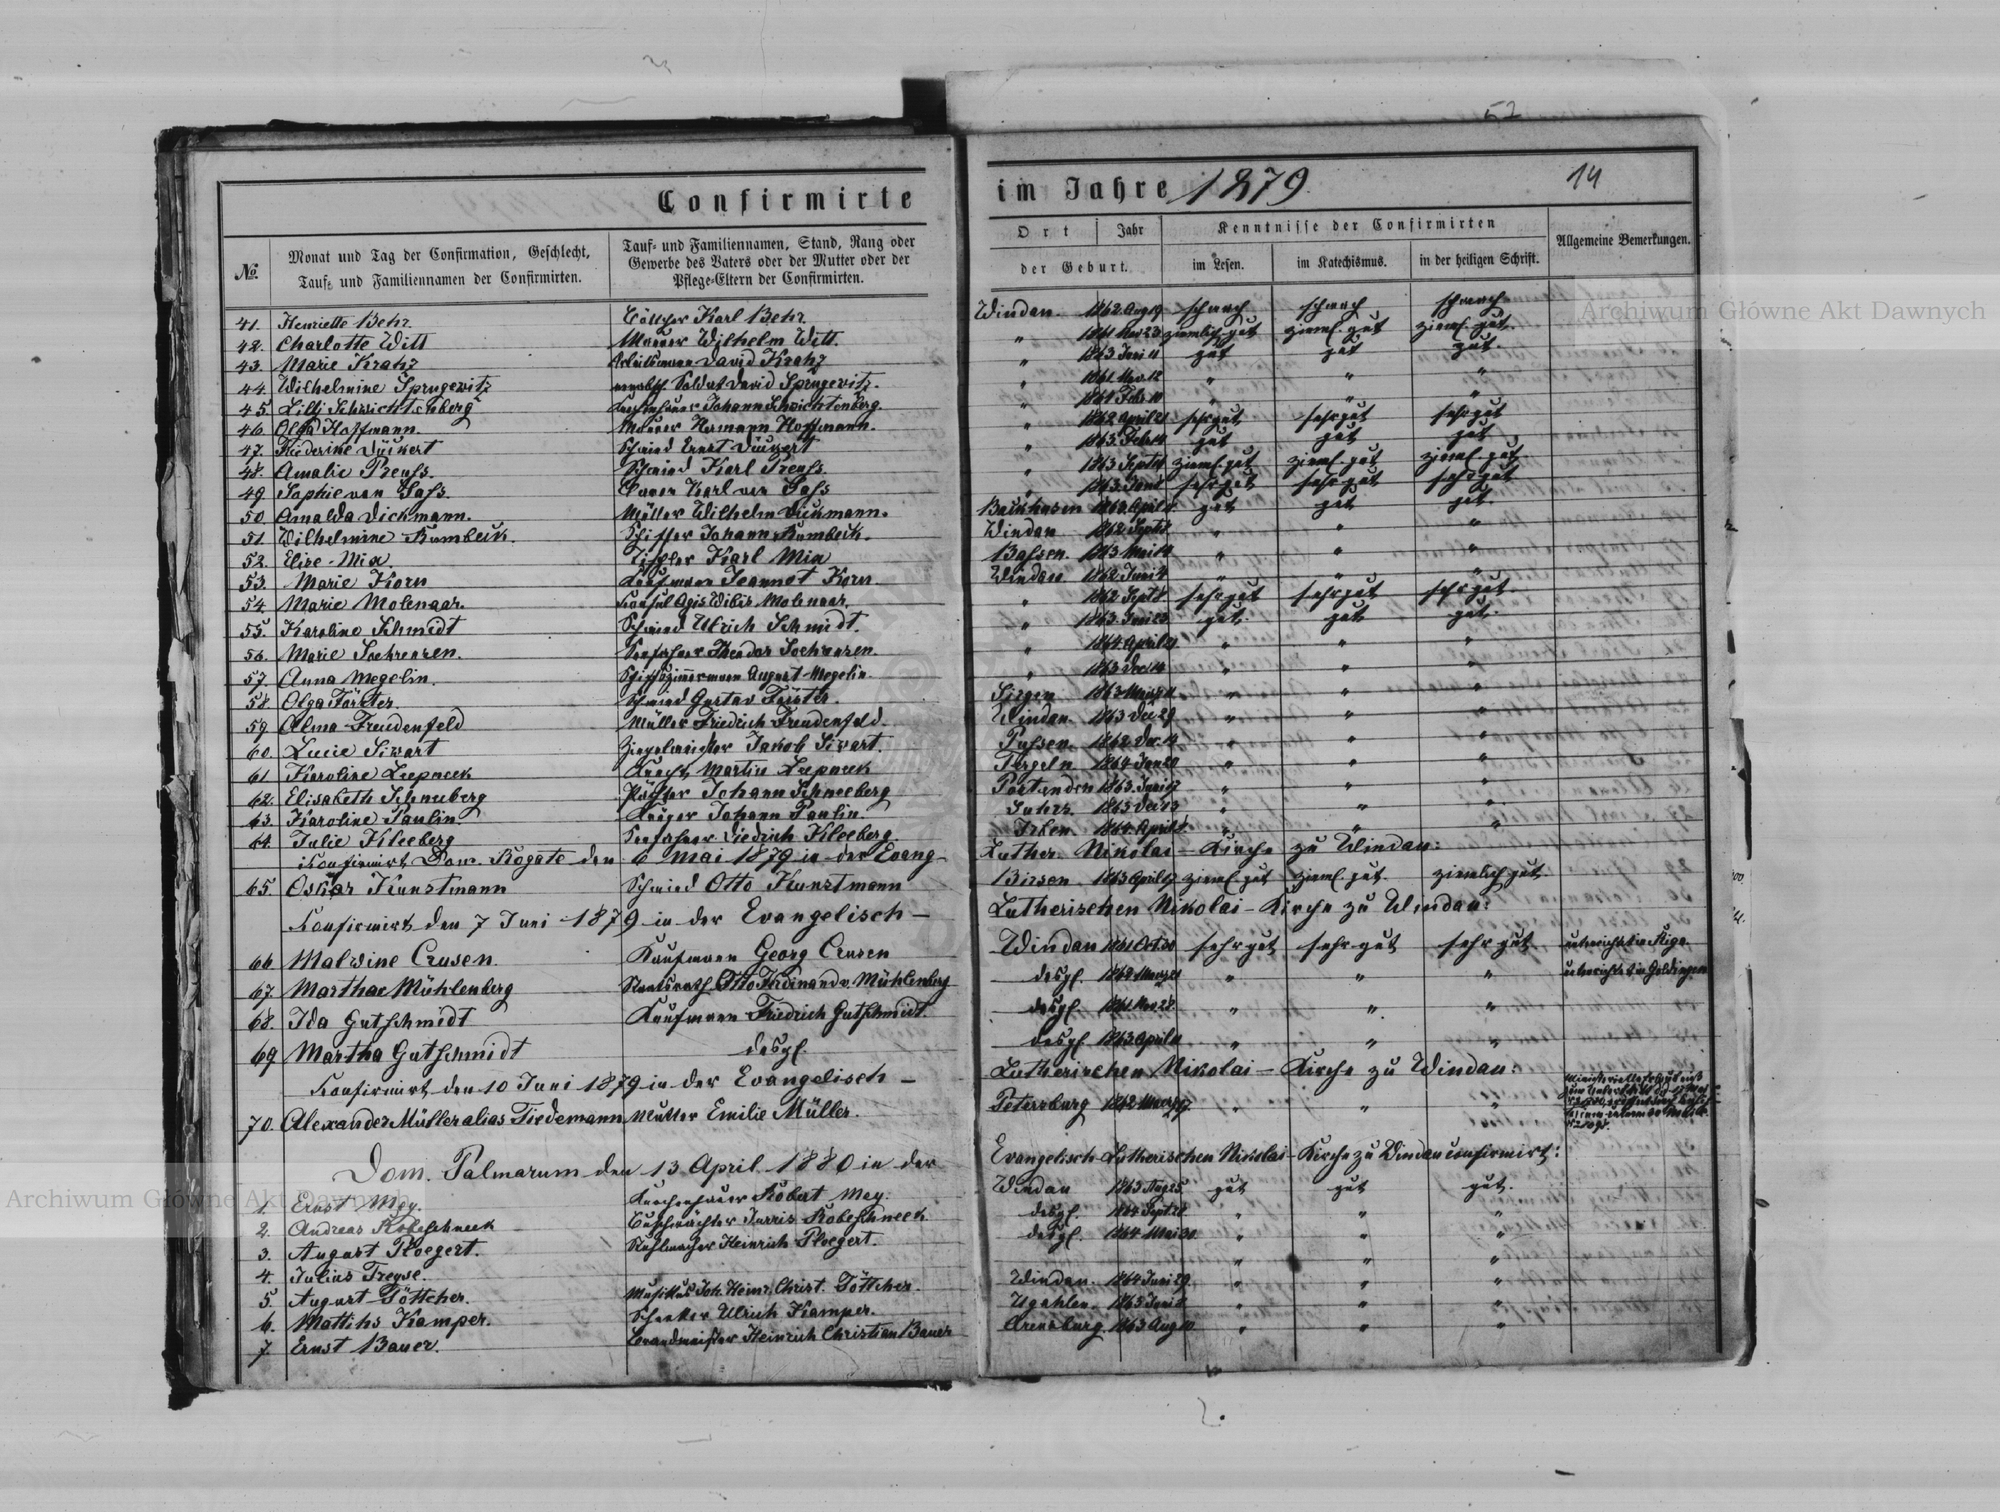 52
Confirmirte im Jahre 1879. 14
№. Monat und Tag der Confirmation, Geschlecht, Tauf- und Familiennamen der Confirmirten. Tauf- und Familiennamen, Stand, Rang oder Gewerbe des Vaters oder der Mutter oder der Pflege-Eltern der Confirmirten. Ort Jahr der Geburt. Kenntnisse der Confirmirten im Lesen. im Katechismus. in der heiligen Schrift. Allgemeine Bemerkungen.
41. Henriette Behr. Böttcher Karl Behr. Windau. 1862 Aug 19 schwach schwach schwach
42. Charlotte Witt Maurer Wilhelm Witt. " 1861 Nov 23 ziemlich gut zieml. gut zieml. gut.
43. Marie Kratz Arbeitsmann David Kratz " 1863 Juni 11 gut gut gut.
44. Wilhelmine Sprugewitz Soldat David Sprugewitz. " 1861 Nov. 12 " " "
45. Lilli Schwichtenberg Knochenhauer Johann Schwichtenberg. " 1861 Febr 10
46. Olga Hoffmann. Maurer Hermann Hoffmann. " 1862 April 21 sehr gut sehr gut sehr gut
47. Friederike Duckert Schmied Ernst Duckert " 1863 Febr 14 gut gut gut
48. Amalie Preuss. Schmied Karl Preuss. " 1863 Sept zieml. gut zieml. gut zieml. gut
49. Sophie van Sass. Karl van Sass " 1863 sehr gut sehr gut sehr gut
50. Amalda Dickmann. Müller Wilhelm Dickmann. Backhusen 1862 April gut gut gut.
51. Wilhelmine Kumbeik. Schiffer Johann Kumbeik. Windau 1862 Sept " " "
52. Elise Mix. Tischler Karl Mix Bassen. 1863 Mai 14 " " "
53. Marie Korn Kaufmann Jeannot Korn Windau 1862 Juni 4 " " "
54. Marie Molenaar. Konsul Agis Wibis Molenaar. " 1862 Sept sehr gut sehr gut sehr gut
55. Karoline Schmidt Schmied Ulrich Schmidt. " 1863 Juni 23 gut. gut gut.
56. Marie Soehrenzen. Seefahrer Theodor Soehrenzen " 1864 April " " "
57. Anna Megelin. Schiffszimmermann August Megelin. " 1863 Dec 14 " "
58. Olga Förster. Schmied Gustav Förster. 1863 " " "
59. Alma Freudenfeld Müller Friedrich Freudenfeld. Windau. 1863 Dec 29 " " "
60. Lucie Siwart Ziegelmeister Jakob Siwart. Pussen. 1862 Dec. " " "
61. Karoline Leepneek Knecht Martin Leepneek Pergeln 1864 Jan 20 " " "
62. Elisabeth Schneeberg Pächter Johann Schneeberg 1863 Juni 17 " " "
63. Karoline Paulin. Krüger Johann Paulin. 1863 Dec 13 " " "
64. Julie Kleeberg Seefahrer Diedrich Kleeberg. 1864 April " " "
Konfirmirt Dom. Rogate den 6 Mai 1879 in der Evang- Luther. Nikolai-Kirche zu Windau:
65. Oskar Kunstmann Schmied Otto Kunstmann Birsen. 1863 April zieml. gut zieml. gut. ziemlich gut
Konfirmirt den 7 Juni 1879 in der Evangelisch- Lutherischen Nikolai-Kirche zu Windau:
66. Malwine Crusen Kaufmann Georg Crusen Windau 1861 Oct sehr gut sehr gut sehr gut unterrichtet in Riga.
67. Martha Mühlenberg Staatsrath Otto Ferdinand v. Mühlenberg desgl. 1862 " " " unterrichtet in Goldingen
68. Ida Gutschmidt Kaufmann Friedrich Gutschmidt. desgl. 1861 Nov 28 " " "
69. Martha Gutschmidt desgl. desgl. 1863 April " " "
Konfirmirt den 10 Juni 1879 in der Evangelisch- Lutherischen Nikolai-Kirche zu Windau:
70. Alexander Müller alias Tiedemann Mutter Emilie Müller. Petersburg 1862 " " "
Dom. Palmarum den 13 April 1880 in der Evangelisch-Lutherischen Nikolai-Kirche zu Windau confirmirt:
1. Ernst Mey. Knochenhauer Robert Mey. Windau 1863 Aug 25 gut gut gut.
2. Andreas Kobeschneek Buschwächter Jurris Kobeschneek desgl. 1864 Sept 28 " " "
3. August Ploegert. Stuhlmacher Heinrich Ploegert. desgl. 1864 Mai 30 " " "
4. Julius Freyse. " "
5. August Töttcher. Musikus Joh. Heinr. Christ. Töttcher. Windau. 1864 Juni 29 " " "
6. Matthis Kamper. Ulrich Kamper. Ugahlen. 1863 Juni " " "
7. Ernst Bauer. Brandmeister Heinrich Christian Bauer Arensburg. 1863 Aug 10 " " "
Archiwum Główne Akt Dawnych
Archiwum Główne Akt Dawnych